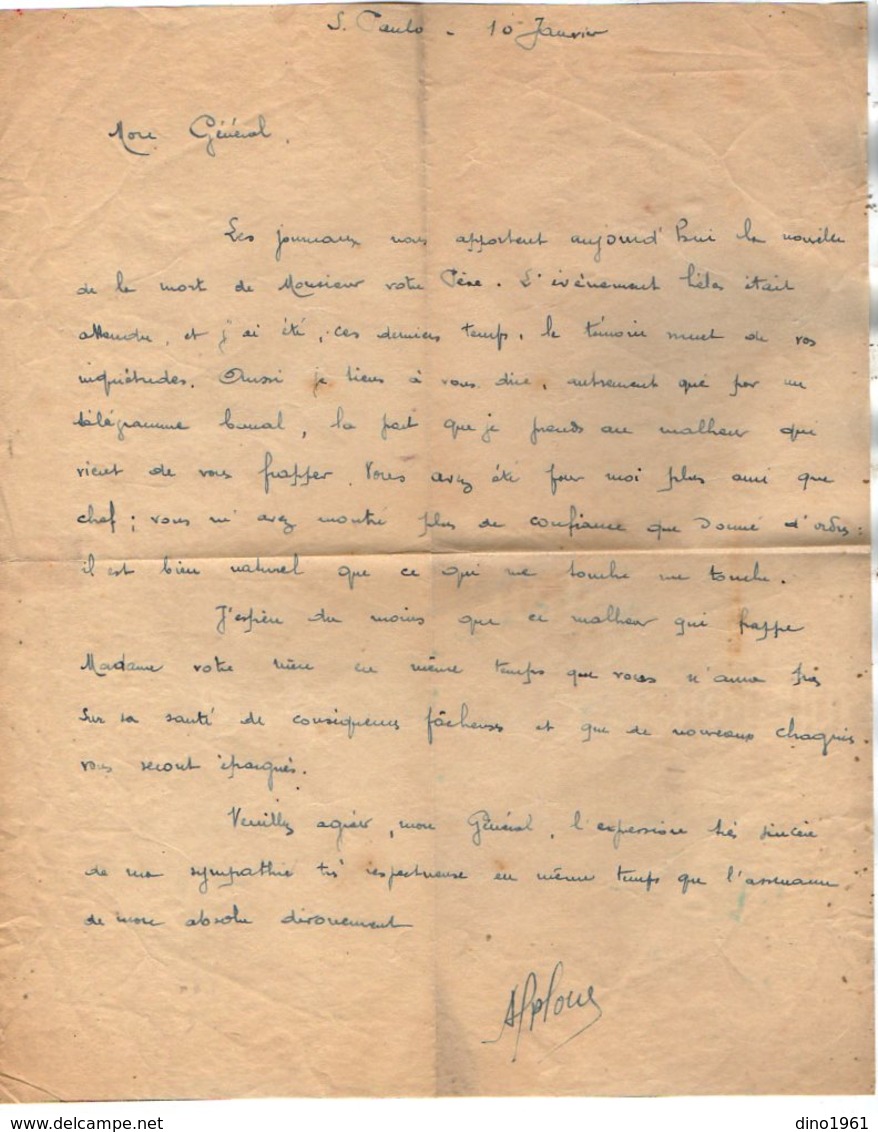 S. Paulo - 10 Janvier
Mon Général.
Les journaux nous apportent aujourd'hui la nouvelle
de la mort de Monsieur votre Père. L'évènement hélas était
attendu, et j'ai été, ces derniers temps, le témoin muet de vos
inquiétudes. Aussi je tiens à vous dire, autrement que par un
télégramme banal, la part que je prends au malheur qui
vient de vous frapper. Vous avez été pour moi plus ami que
chef; vous m'avez montré plus de confiance que donné d'ordres:
il est bien naturel que ce qui me touche me touche.
J'espère du moins que ce malheur qui frappe
Madame votre mère en même temps que vous n'aura pas
sur sa santé de conséquences fâcheuses et que de nouveaux chagrins
vous seront épargnés.
Veuillez agréer, mon Général, l'expression très sincère
de ma sympathie très respectueuse en même temps que l'assurance
de mon absolu dévouement
dino1961